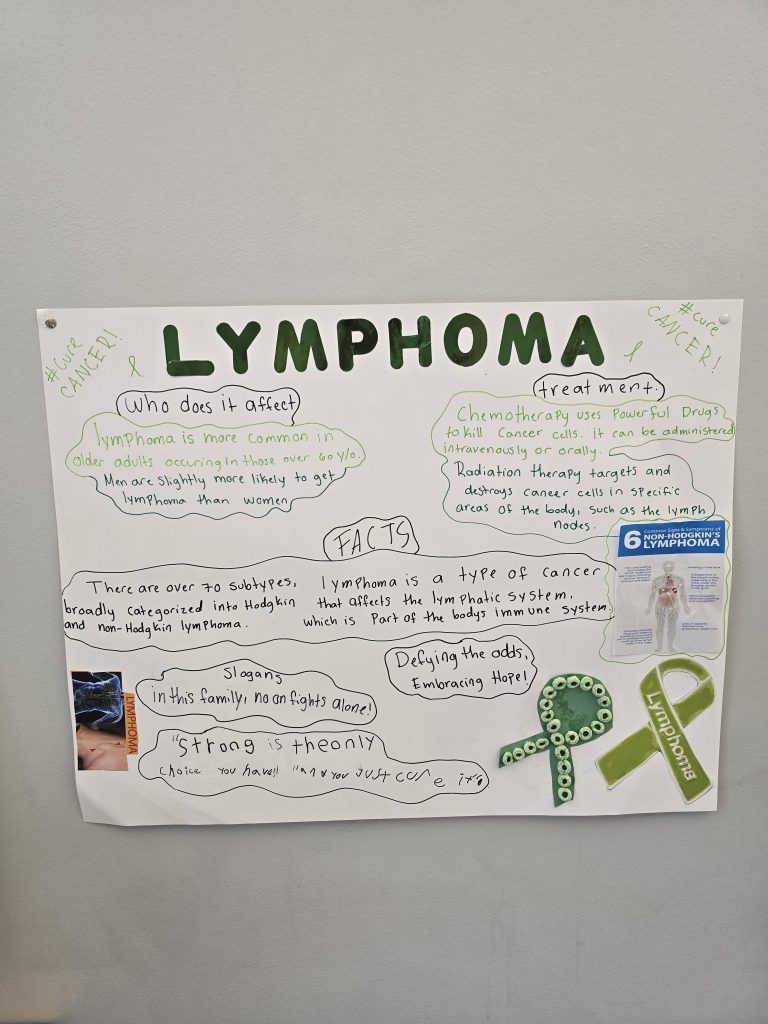 #cure
CANCER!
LYMPHOMA
#cure
CANCER!
Who does it affect
lymphoma is more common in
older adults occuring in those over 60 y/o.
Men are slightly more likely to get
lymphoma than women
treatment.
Chemotherapy uses Powerful Drugs
to kill cancer cells. it can be administered
intravenously or orally.
Radiation therapy targets and
destroys cancer cells in specific
areas of the body, such as the lymph
nodes.
FACTS
There are over 70 subtypes,
broadly categorized into Hodgkin
and non-Hodgkin lymphoma.
lymphoma is a type of cancer
that affects the lymphatic system.
which is Part of the bodys immune system.
6 Common Signs & Symptoms of
NON-HODGKIN'S
LYMPHOMA
Slogans
in this family, no on fights alone!
Defying the odds,
Embracing Hope!
LYMPHOMA
"Strong is theonly
choice you have!!
you just cure it"
Lymphoma